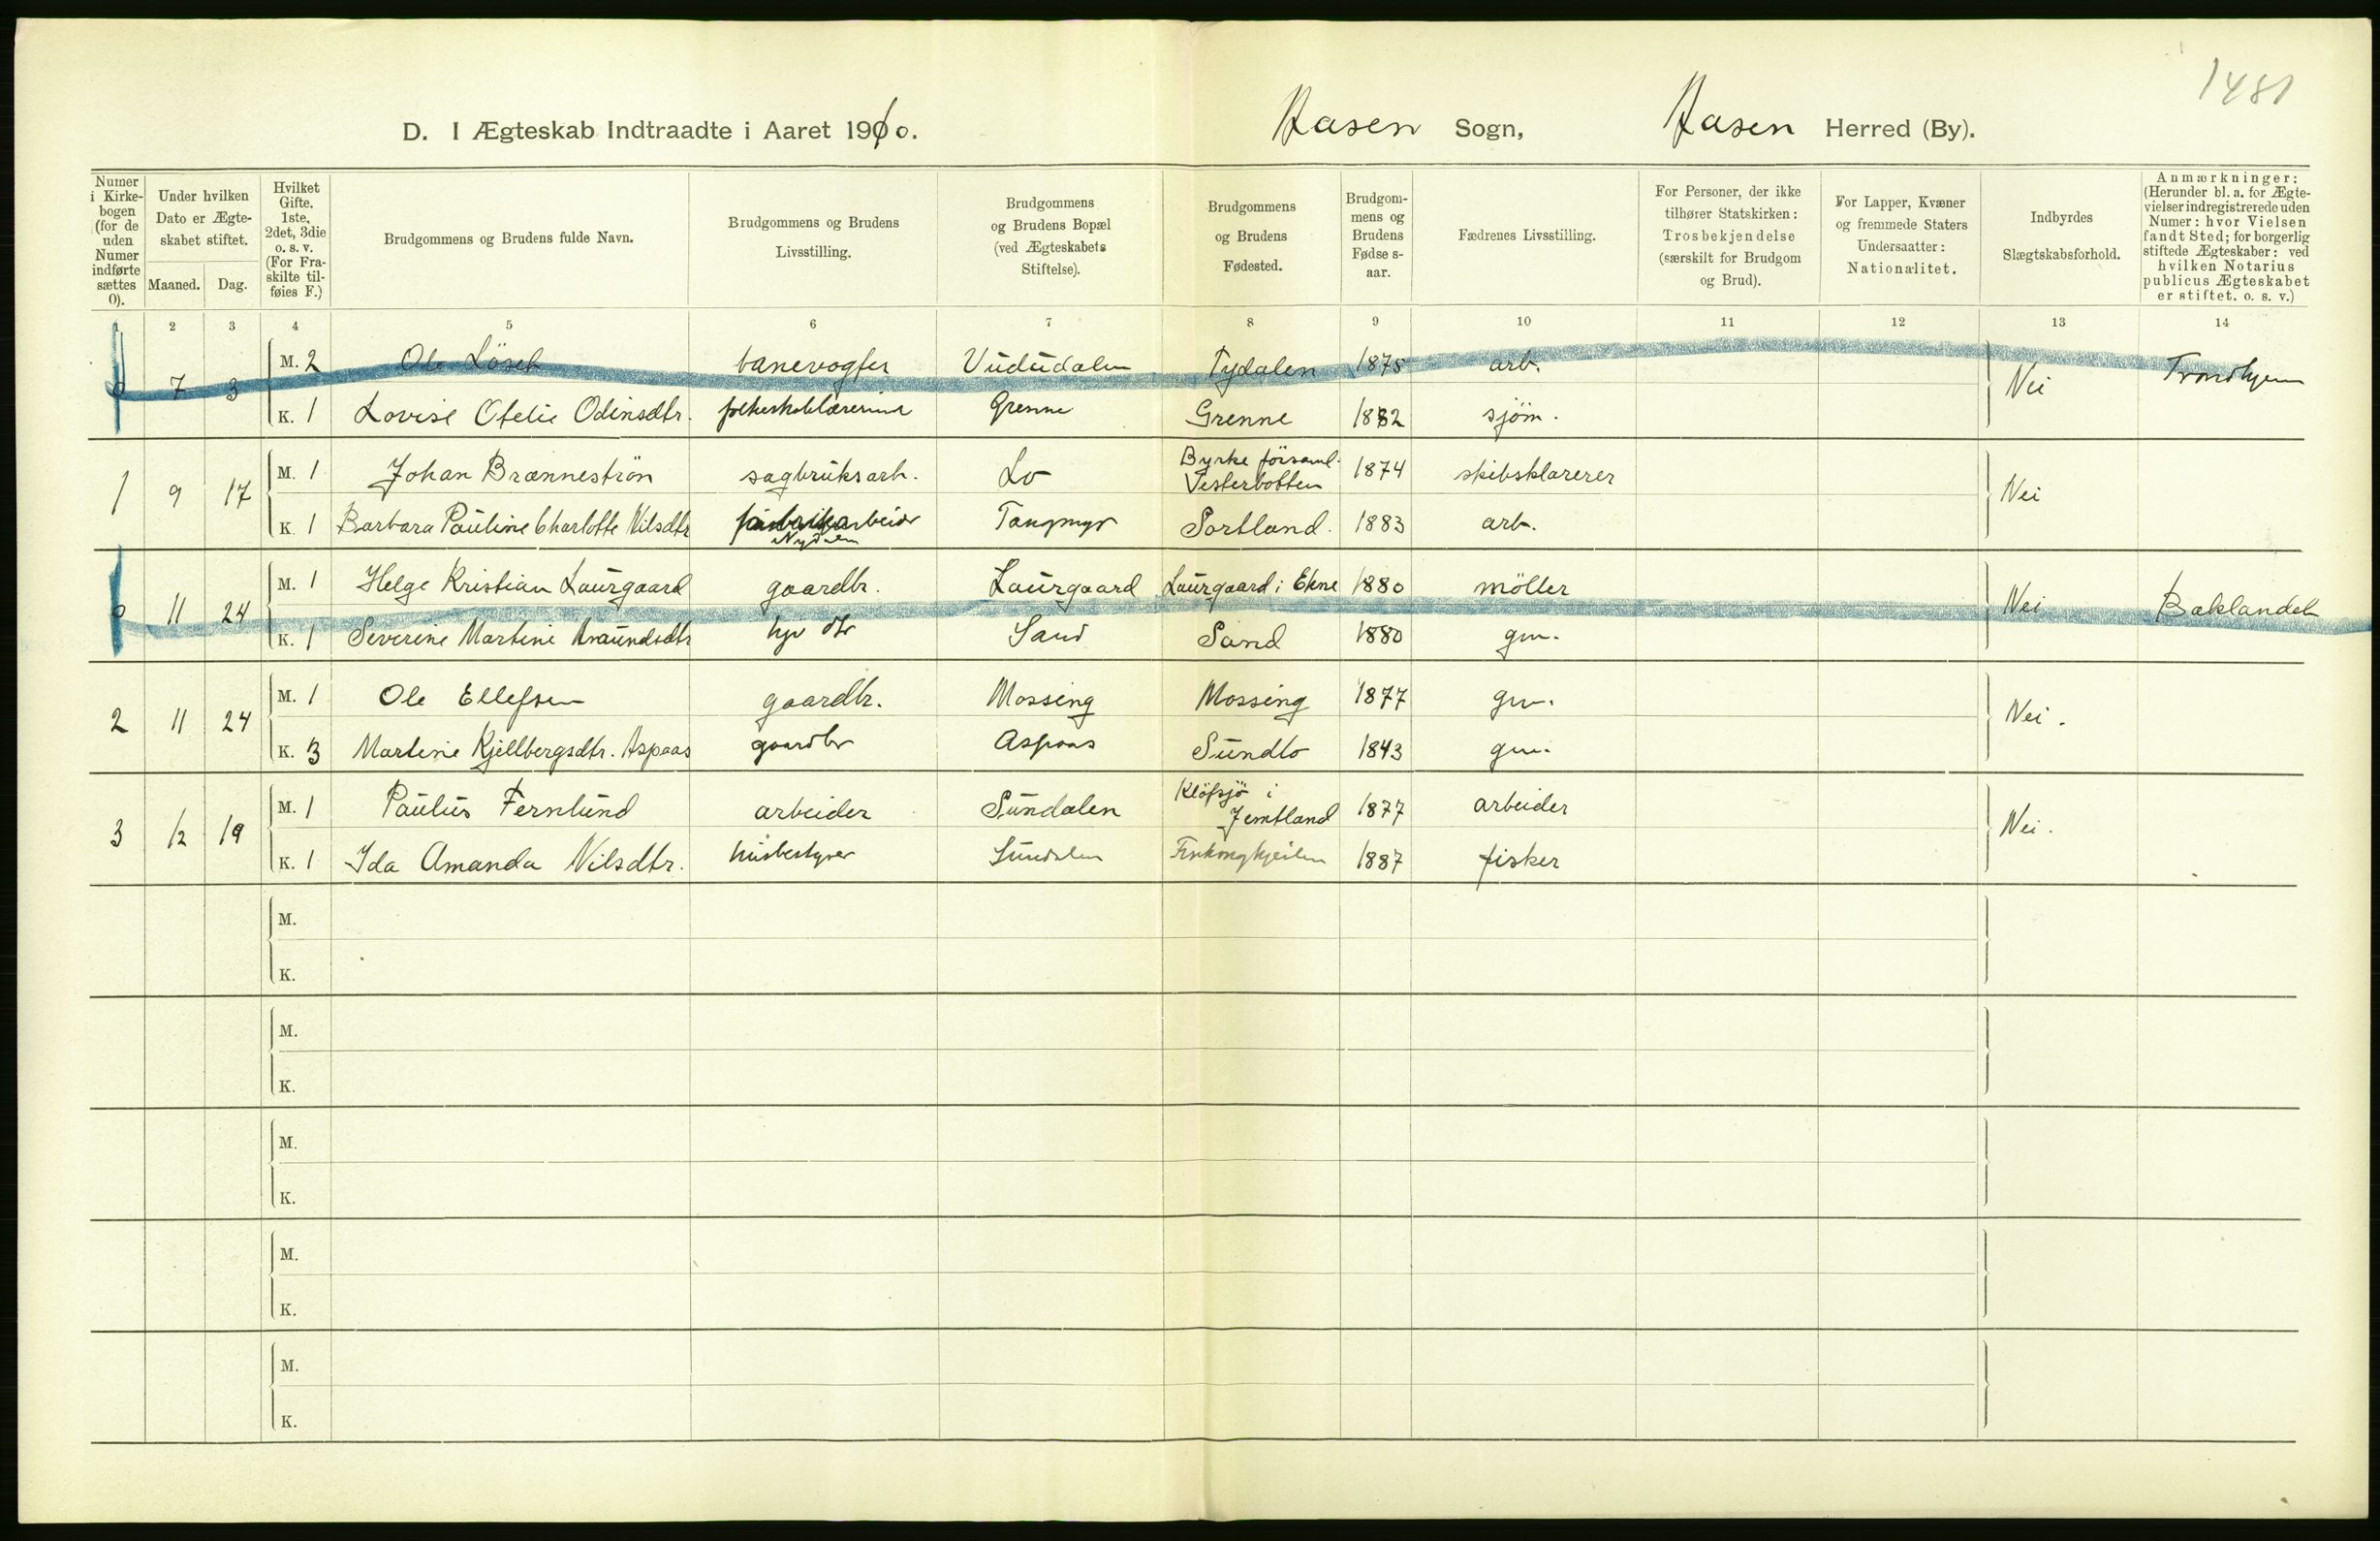 1481
D. I Ægteskab Indtraadte i Aaret 1910. Aasen Sogn, Aasen Herred (By).
Numer i Kirkebogen (for de uden Numer indførte sættes 0).
Under hvilken Dato er Ægteskabet stiftet.
Maaned. Dag.
Hvilket Gifte. 1ste, 2det, 3die o. s. v. (For Fraskilte tilføies F.)
Brudgommens og Brudens fulde Navn.
Brudgommens og Brudens Livsstilling.
Brudgommens og Brudens Bopæl (ved Ægteskabets Stiftelse).
Brudgommens og Brudens Fødested.
Brudgommens og Brudens Fødselsaar.
Fædrenes Livsstilling.
For Personer, der ikke tilhører Statskirken: Trosbekjendelse (særskilt for Brudgom og Brud).
For Lapper, Kvæner og fremmede Staters Undersaatter: Nationalitet.
Indbyrdes Slægtskabsforhold.
Anmærkninger: (Herunder bl. a. for Ægtevielser indregistrerede uden Numer: hvor Vielsen fandt Sted; for borgerlig stiftede Ægteskaber: ved hvilken Notarius publicus Ægteskabet er stiftet. o. s. v.)
1 2 3 4 5 6 7 8 9 10 11 12 13 14
0 7 3 M. 2 Ole Löset banevogter Vududalen Tydalen 1875 arb. Nei Trondhjem
K. 1 Lovise Otelie Odinsdtr. folkeskolelærerinde Grenne Grenne 1882 sjöm.
1 9 17 M. 1 Johan Brænneströn sagbruksarb. Lo Byrke församl. Vesterbotten 1874 skibsklarerer Nei
K. 1 Barbara Pauline Charlotte Nilsdtr Tangmyr Sortland. 1883 arb.
0 11 24 M. 1 Helge Kristian Laurgaard gaardbr. Laurgaard Laurgaard i Ekne 1880 möller Nei Baklandet
K. 1 Severine Martine hjv dtr Sand Sand 1880 gm.
2 11 24 M. 1 Ole Ellefsen gaardbr. Mossing Mossing 1877 gm. Nei.
K. 3 Martine Kjellbergsdtr. Aspaas gaardbr Aspaas Sundlo 1843 gm.
3 12 19 M. 1 Paulus Fernlund arbeider Sundalen Klöfsjö i Jemtland 1877 arbeider Nei.
K. 1 Ida Amanda Nilsdtr. husbestyrer Sundalen 1887 fisker
M.
K.
M.
K.
M.
K.
M.
K.
M.
K.